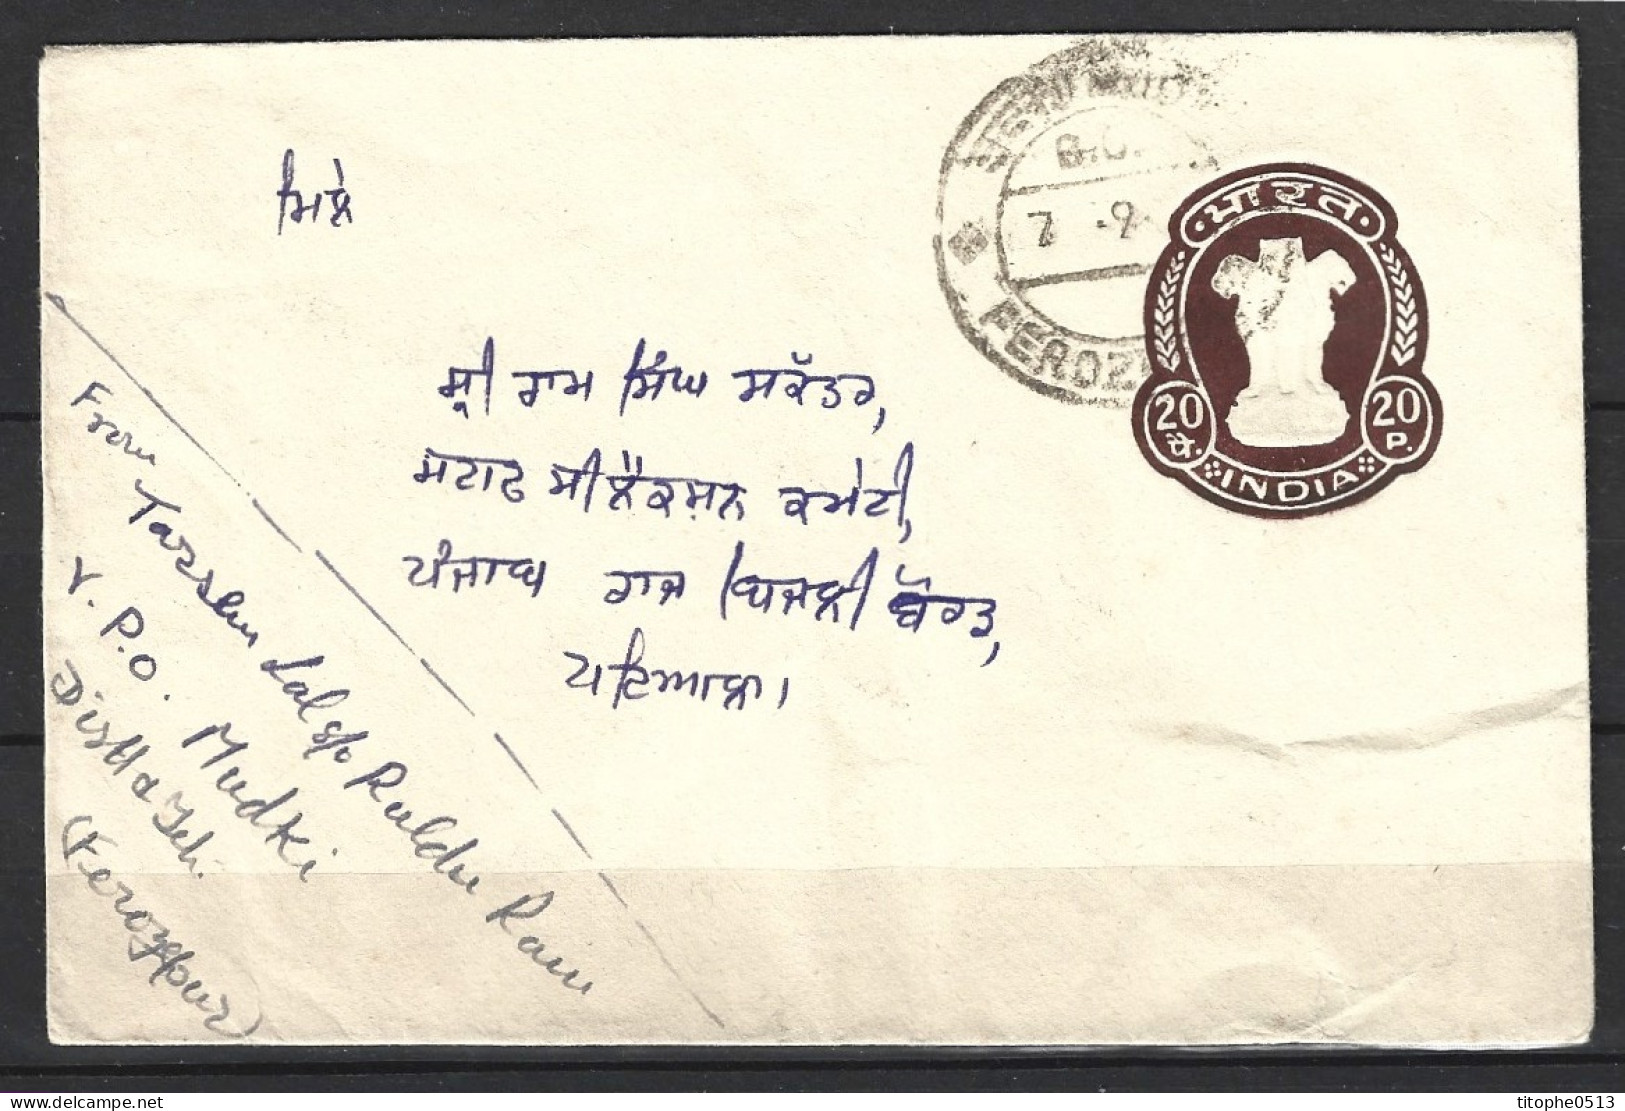 ਮਿਲੇ
ਸ਼੍ਰੀ ਰਾਮ ਸਿੰਘ ਸਕੱਤਰ,
ਸਟਾਫ ਸੀਲੈਕਸ਼ਨ ਕਮੇਟੀ,
ਪੰਜਾਬ ਰਾਜ ਬਿਜਲੀ ਬੋਰਡ,
ਪਟਿਆਲਾ।
From
Tarsem Lal s/o Ruldu Ram
V. P.O. Mudki
Distt & Teh.
(Ferozepur)
7 -9
FEROZ
भारत
20 पै.
20 P.
INDIA
titophe0513